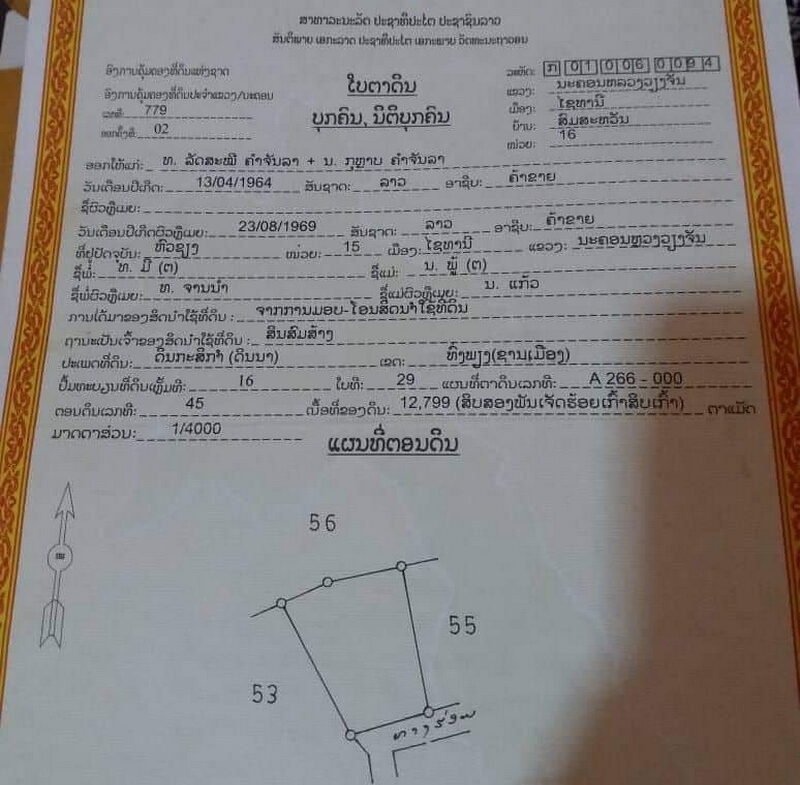 ສາທາລະນະລັດ ປະຊາທິປະໄຕ ປະຊາຊົນລາວ
ສັນຕິພາບ ເອກະລາດ ປະຊາທິປະໄຕ ເອກະພາບ ວັດທະນະຖາວອນ
ອົງການຄຸ້ມຄອງທີ່ດິນແຫ່ງຊາດ
ອົງການຄຸ້ມຄອງທີ່ດິນປະຈຳແຂວງ/ນະຄອນ
ເລກທີ: 779
ອອກຄັ້ງທີ: 02
ໃບຕາດິນ
ບຸກຄົນ, ນິຕິບຸກຄົນ
ລະຫັດ: ກ 01 006 0094
ແຂວງ: ນະຄອນຫລວງວຽງຈັນ
ເມືອງ: ໄຊທານີ
ບ້ານ: ສົມສະຫວັນ
ໜ່ວຍ: 16
ອອກໃຫ້ແກ່: ທ. ລັດສະໝີ ຄຳຈັນລາ + ນ. ກຸຫຼາບ ຄຳຈັນລາ
ວັນເດືອນປີເກີດ: 13/04/1964 ສັນຊາດ: ລາວ ອາຊີບ: ຄ້າຂາຍ
ຊື່ຜົວຫຼືເມຍ:
ວັນເດືອນປີເກີດຜົວຫຼືເມຍ: 23/08/1969 ສັນຊາດ: ລາວ ອາຊີບ: ຄ້າຂາຍ
ທີ່ຢູ່ປັດຈຸບັນ: ຫົວຊຽງ ໜ່ວຍ: 15 ເມືອງ: ໄຊທານີ ແຂວງ: ນະຄອນຫຼວງວຽງຈັນ
ຊື່ພໍ່: ທ. ມີ (ຕ) ຊື່ແມ່: ນ. ພູ້ (ຕ)
ຊື່ພໍ່ຜົວຫຼືເມຍ: ທ. ຈານນຳ ຊື່ແມ່ຜົວຫຼືເມຍ: ນ. ແກ້ວ
ການໄດ້ມາຂອງສິດນຳໃຊ້ທີ່ດິນ : ຈາກການມອບ-ໂອນສິດນຳໃຊ້ທີ່ດິນ
ຖານະເປັນເຈົ້າຂອງສິດນຳໃຊ້ທີ່ດິນ : ສິນສົມສ້າງ
ປະເພດທີ່ດິນ: ດິນກະສິກຳ (ດິນນາ) ເຂດ: ທົ່ງພຽງ(ຊານເມືອງ)
ປຶ້ມທະບຽນທີ່ດິນເຫຼັ້ມທີ: 16 ໃບທີ: 29 ແຜນທີ່ຕາດິນເລກທີ: A 266 - 000
ຕອນດິນເລກທີ: 45 ເນື້ອທີ່ຂອງດິນ: 12,799 (ສິບສອງພັນເຈັດຮ້ອຍເກົ້າສິບເກົ້າ) ຕາແມັດ
ມາດຕາສ່ວນ: 1/4000
ແຜນທີ່ຕອນດິນ
56
55
53